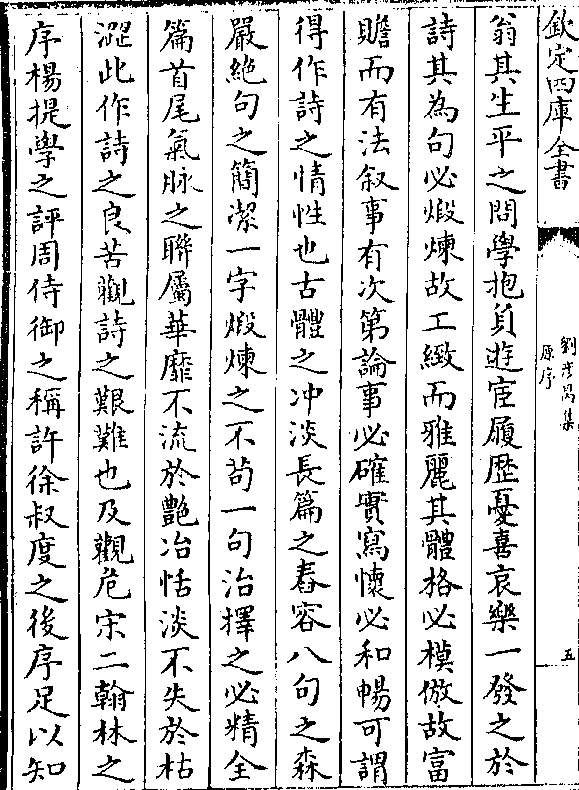 欽定四庫全書
劉彥昺集
原序
五
翁其生平之問學抱負遊宦履歴憂喜哀樂一發之於
詩其為句必煅煉故工緻而雅麗其體格必模倣故富
贍而有法叙事有次第論事必確實寫懷必和暢可謂
得作詩之情性也古體之冲淡長篇之舂容八句之森
嚴絶句之簡潔一字煅煉之不茍一句治擇之必精全
篇首尾氣脉之聯屬華靡不流於艷冶恬淡不失於枯
澀此作詩之良苦觀詩之艱難也及觀危宋二翰林之
序楊提學之評周侍御之稱許徐叔度之後序足以知